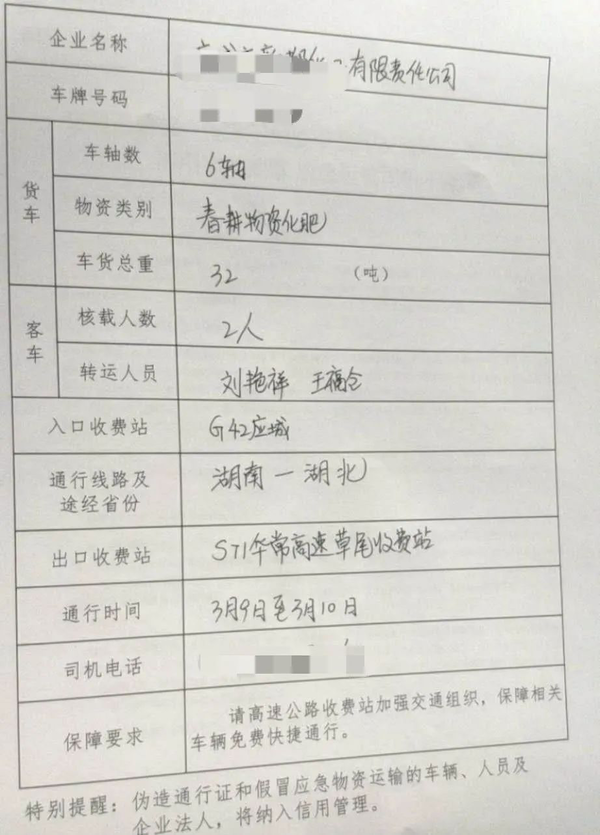 企业名称 有限责任公司
车牌号码
货车
车轴数 6轴
物资类别 春耕物资化肥
车货总重 32 (吨)
客车
核载人数 2人
转运人员 刘艳祥 王福仓
入口收费站 G42应城
通行线路及
途经省份
湖南一湖北
出口收费站 S71华常高速草尾收费站
通行时间 3月9日至3月10日
司机电话
保障要求
请高速公路收费站加强交通组织，保障相关
车辆免费快捷通行。
特别提醒：伪造通行证和假冒应急物资运输的车辆、人员及
企业法人，将纳入信用管理。